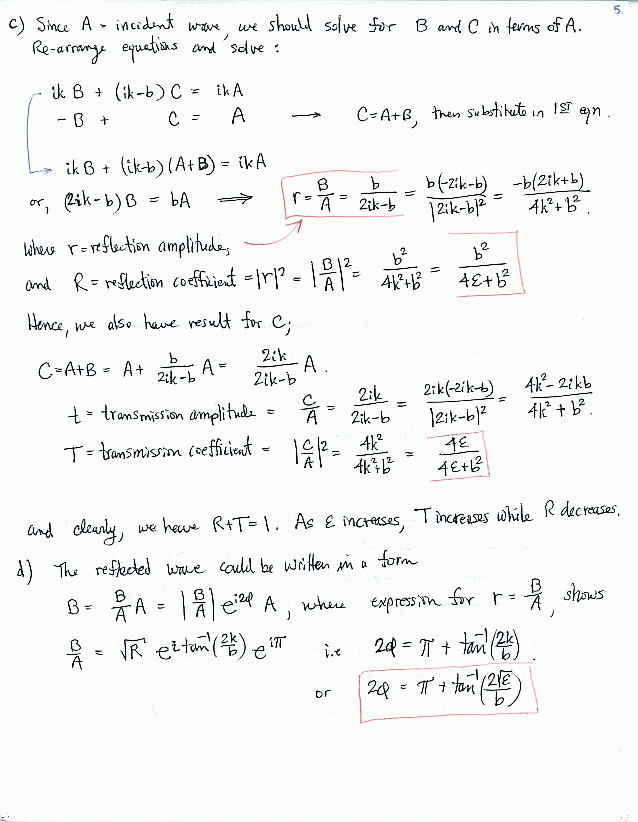 5.
c) Since A - incident wave, we should solve for B and C in terms of A.
Re-arrange equations and solve :
ik B + (ik-b) C = ikA
- B + C = A → C=A+B, then substitute in 1ST eqn.
ikB + (ik-b)(A+B) = ikA
or, (2ik-b)B = bA ⟹ r = B/A = b/(2ik-b) = b(-2ik-b)/|2ik-b|² = -b(2ik+b)/(4k²+b²).
where r = reflection amplitude;
and R = reflection coefficient = |r|² = |B/A|² = b²/(4k²+b²) = b²/(4ε+b²)
Hence, we also have result for C;
C=A+B = A+ b/(2ik-b) A = 2ik/(2ik-b) A.
t = transmission amplitude = C/A = 2ik/(2ik-b) = 2ik(-2ik-b)/|2ik-b|² = (4k²-2ikb)/(4k²+b²).
T = transmission coefficient = |C/A|² = 4k²/(4k²+b²) = 4ε/(4ε+b²)
and clearly, we have R+T=1. As ε increases, T increases while R decreases.
d) The reflected wave could be written in a form
B = B/A A = |B/A| e^{i2φ} A, where expression for r = B/A, shows
B/A = √R e^{i tan⁻¹(2k/b)} e^{iπ} i.e 2φ = π + tan⁻¹(2k/b).
or 2φ = π + tan⁻¹(2√ε/b)